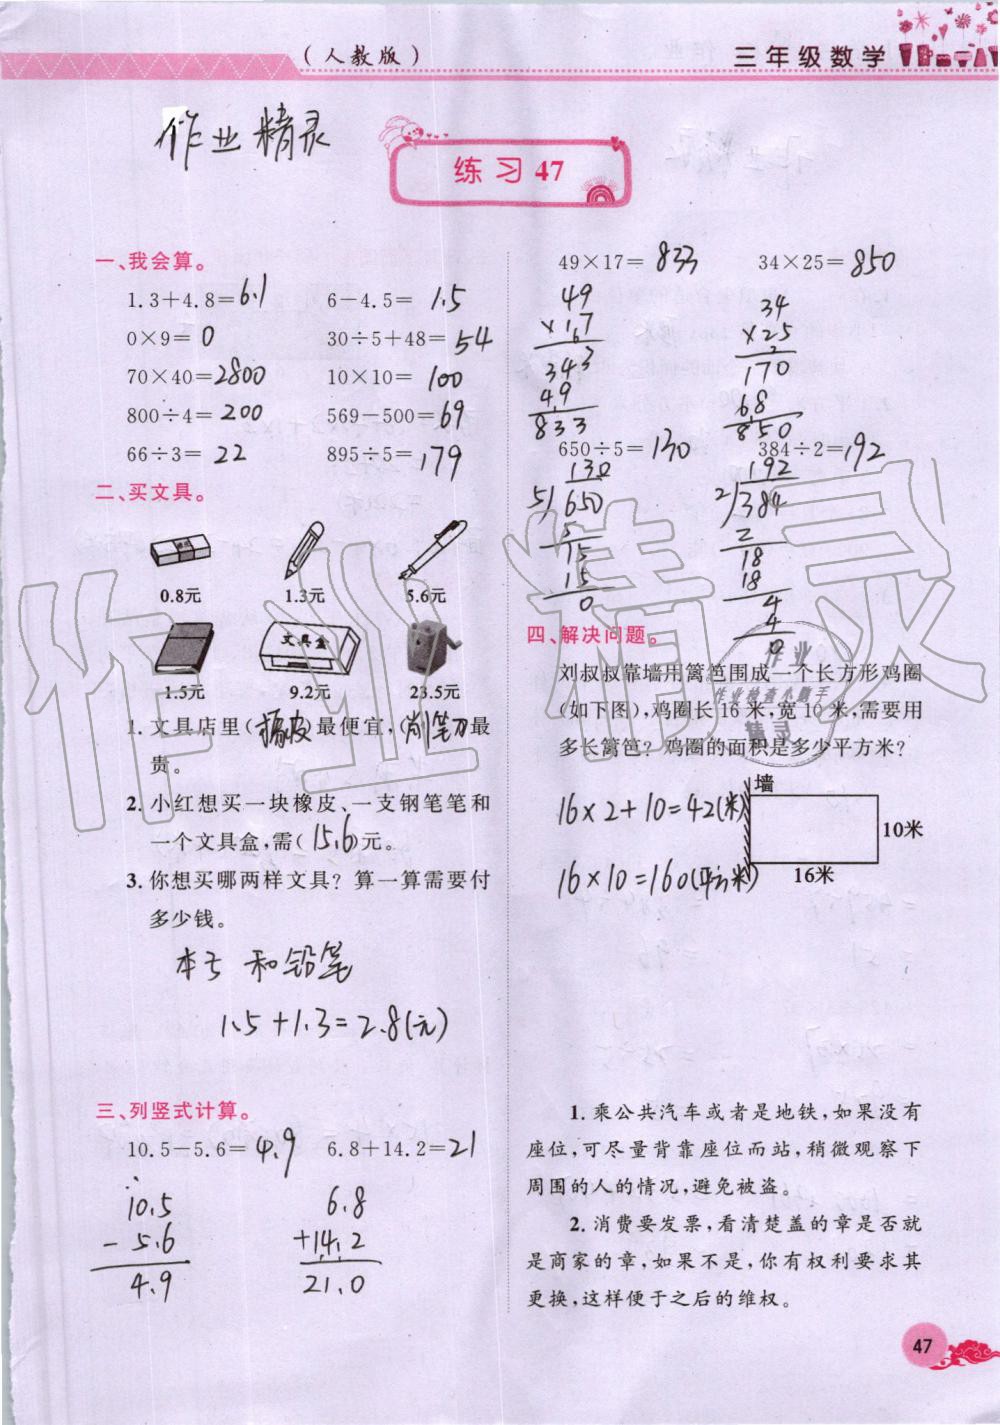 （人教版）
三年级数学
作业精灵
练习 47
一、我会算。
1.3+4.8=6.1 6-4.5=1.5
0×9=0 30÷5+48=54
70×40=2800 10×10=100
800÷4=200 569-500=69
66÷3=22 895÷5=179
二、买文具。
0.8元 1.3元 5.6元
文具盒
1.5元 9.2元 23.5元
1. 文具店里(橡皮)最便宜，(削笔刀)最
贵。
2. 小红想买一块橡皮、一支钢笔笔和
一个文具盒，需(15.6)元。
3. 你想买哪两样文具？算一算需要付
多少钱。
本子和铅笔
1.5+1.3=2.8(元)
三、列竖式计算。
10.5-5.6=4.9 6.8+14.2=21
10.5
-5.6
4.9
6.8
+14.2
21.0
49×17=833 34×25=850
49
×17
343
49
833
34
×25
170
68
850
650÷5=130 384÷2=192
130
5)650
5
15
15
0
192
2)384
2
18
18
4
4
0
四、解决问题。
刘叔叔靠墙用篱笆围成一个长方形鸡圈
(如下图)，鸡圈长16米，宽10米，需要用
多长篱笆？鸡圈的面积是多少平方米？
16×2+10=42(米)
16×10=160(平方米)
墙
10米
16米
1. 乘公共汽车或者是地铁，如果没有
座位，可尽量背靠座位而站，稍微观察下
周围的人的情况，避免被盗。
2. 消费要发票，看清楚盖的章是否就
是商家的章，如果不是，你有权利要求其
更换，这样便于之后的维权。
47
作业精灵
作业
作业检查小助手
精灵